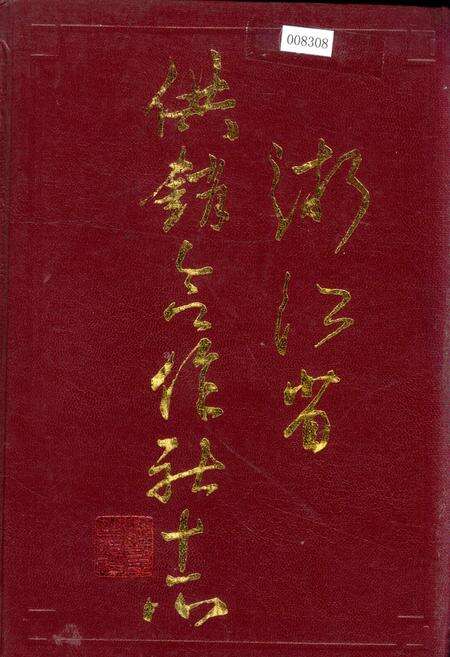 008308
浙江省
供销合作社志